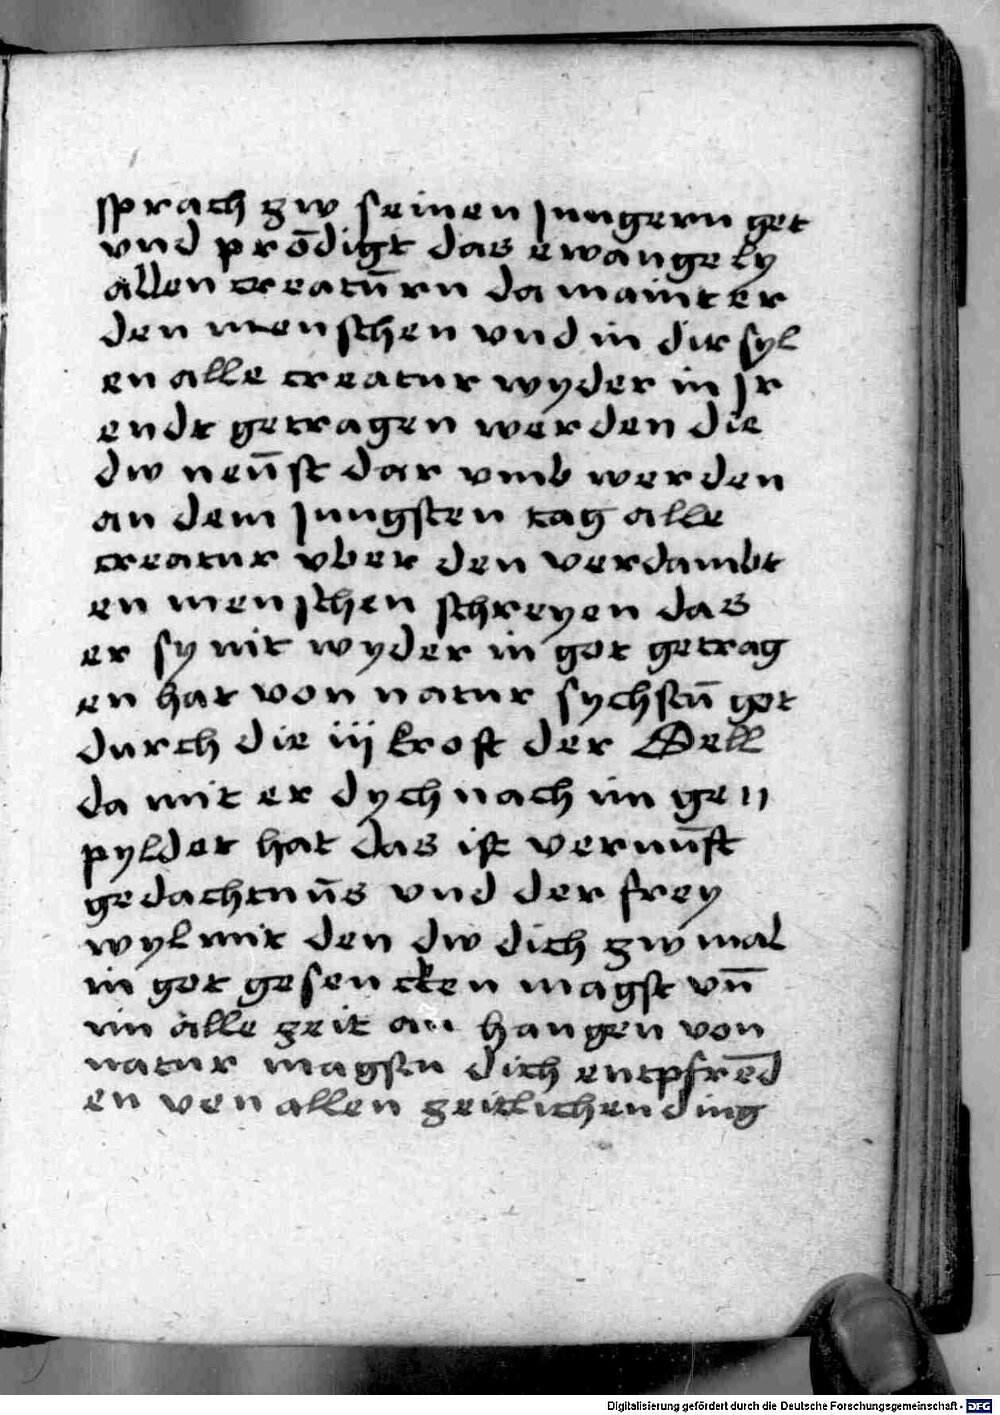 sprach zw seinen Jungern get
vnd prōdigt das ewangely
allen creatūrn da maint er
den menschen vnd in dir syl
en alle creatur wyder in Jr
endt getragen werden die
dw nen̄st dar vmb werden
an dem Jungsten tag alle
creatur vber den verdambt
en menschen schreyen das
er sy nit wyder in got getrag
en hat von natur sychstū got
durch die iij kroft der Sell
da mit er dych nach im gen
pylder hat das ist vernūft
gedachtnūs vnd der frey
wyl mit den dw dich zw mal
in got gesencken magst vn̄
im alle zeit an hangen von
natur magstu dich entpfrēd
en von allen zeitlichen ding
Digitalisierung gefördert durch die Deutsche Forschungsgemeinschaft - DFG